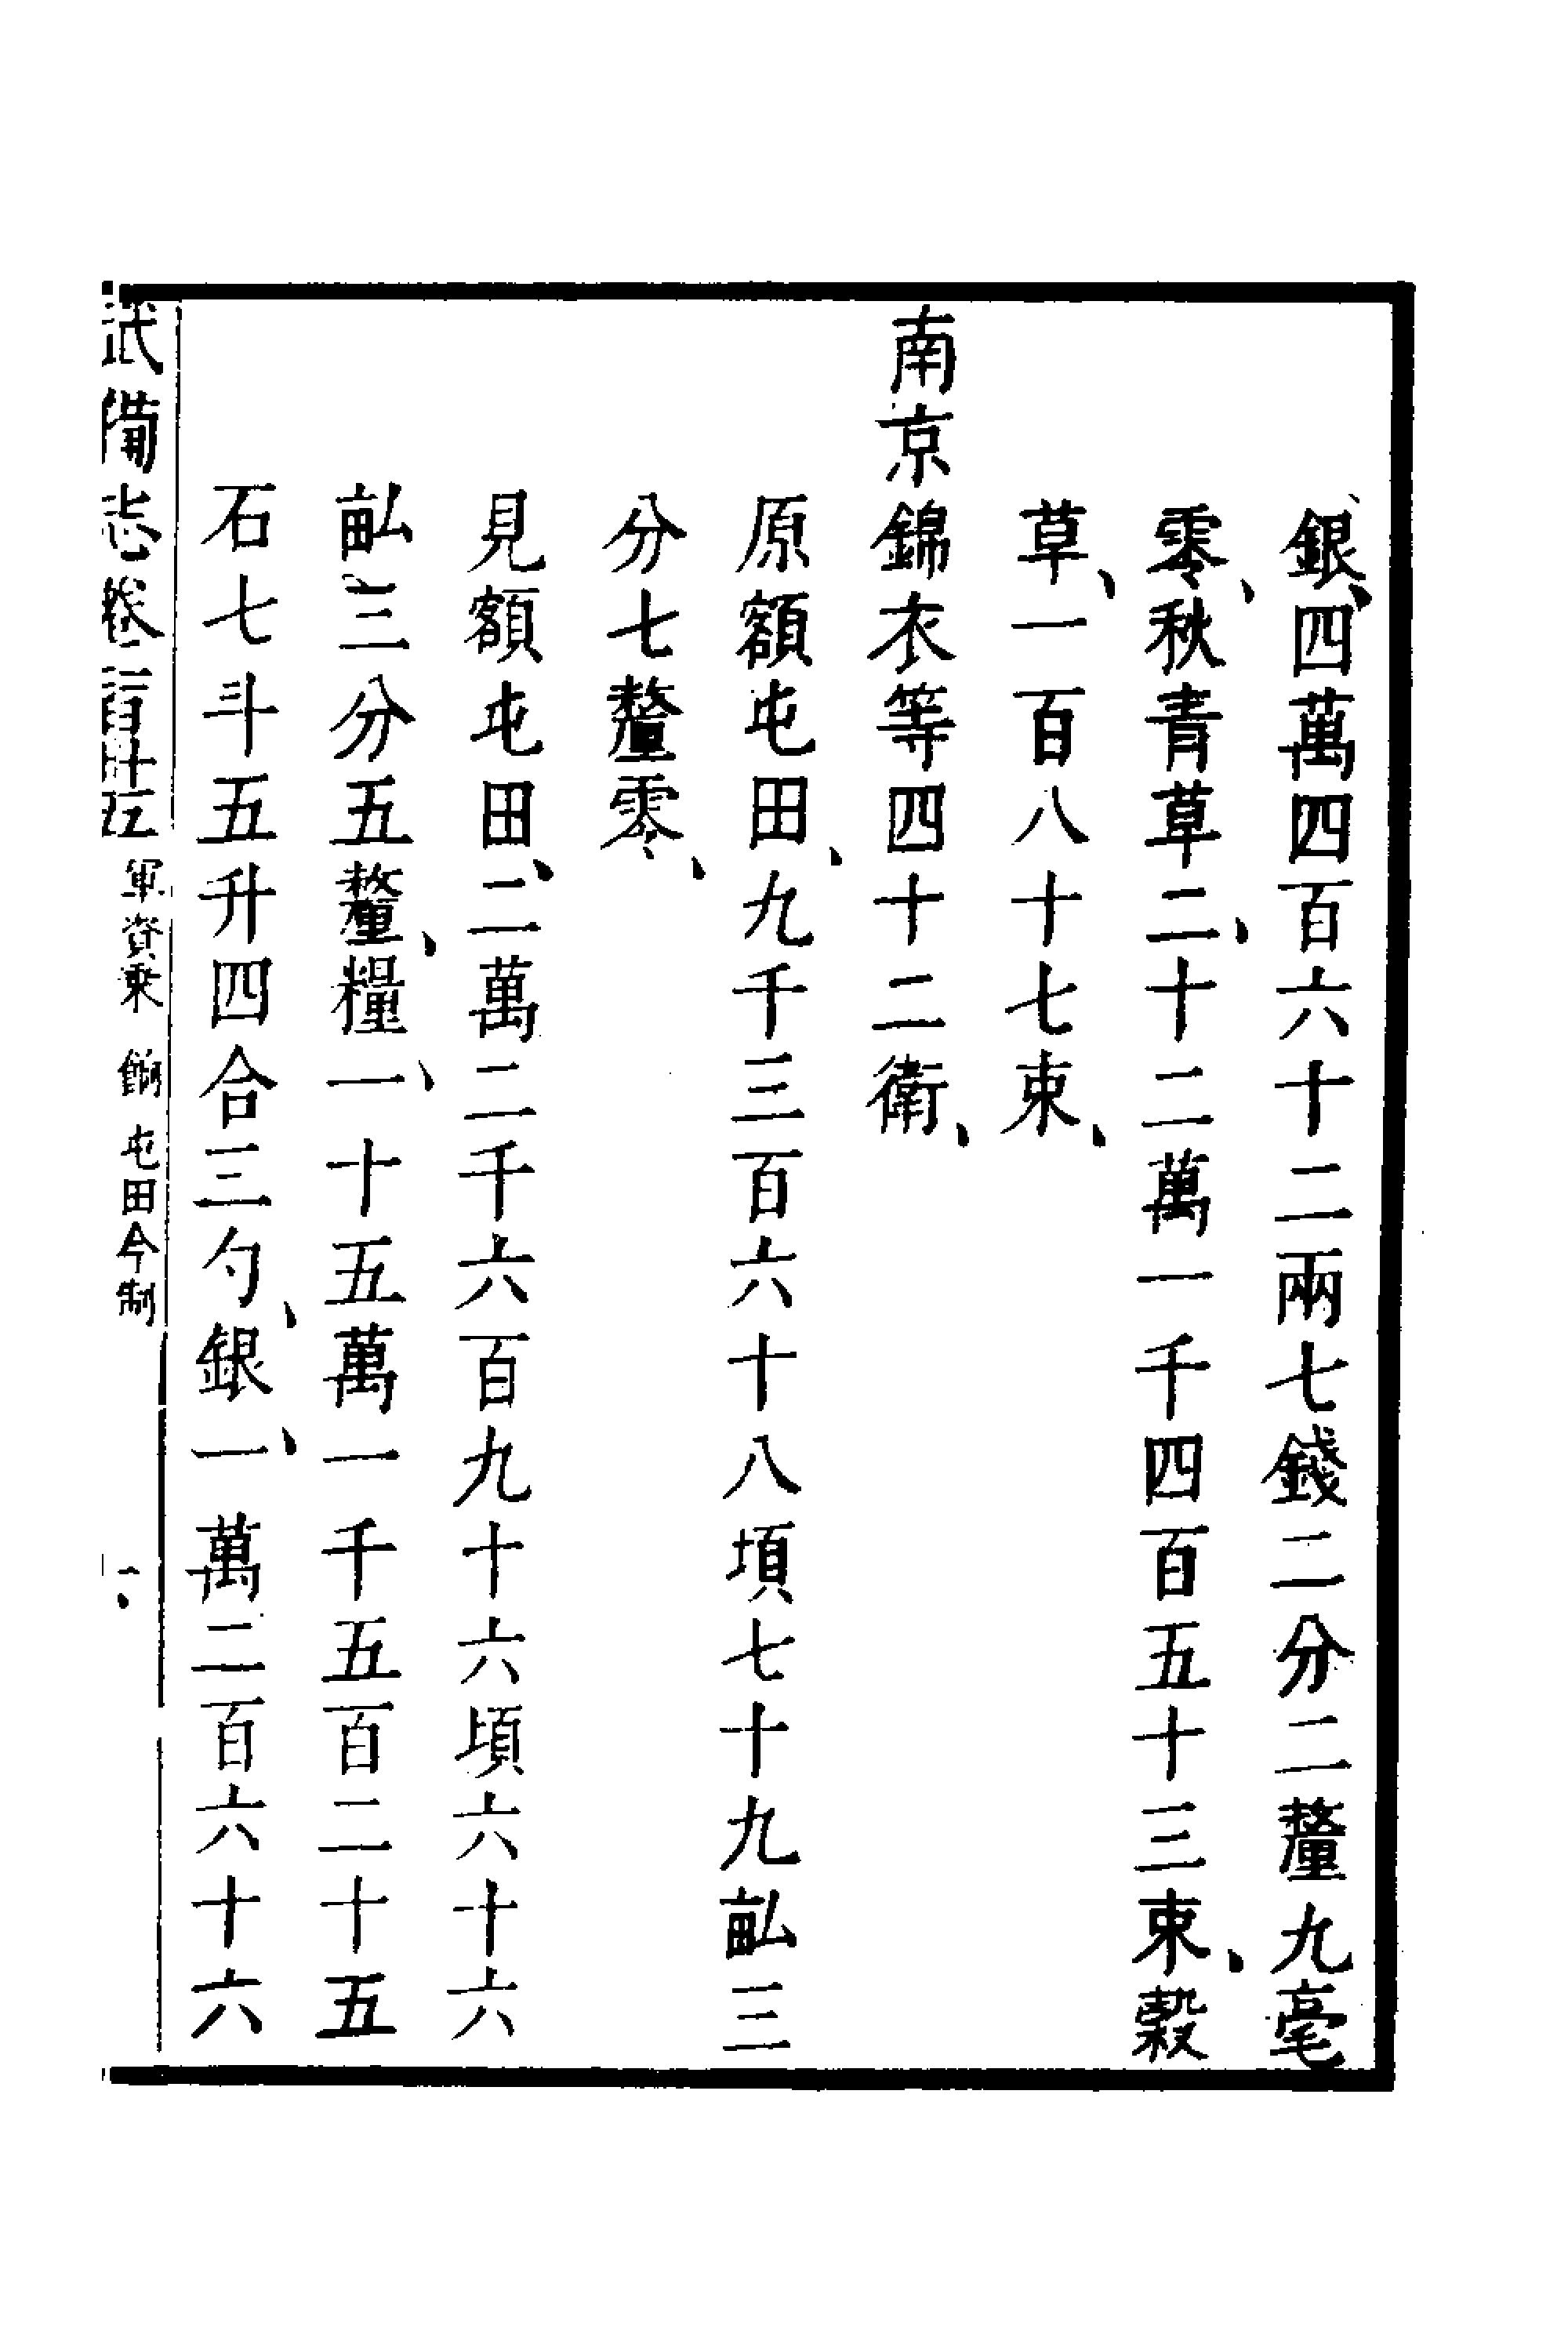 銀、四萬四百六十二兩七錢二分二釐九毫
零、秋青草、二十二萬一千四百五十三束、穀
草、一百八十七束、
南京錦衣等四十二衛、
原額屯田、九千三百六十八頃七十九畆三
分七釐零、
見額屯田、二萬二千六百九十六頃六十六
畆三分五釐、糧、一十五萬一千五百二十五
石七斗五升四合三勺、銀、一萬二百六十六
武備志卷一百卅五 軍資乘 餉 屯田今制